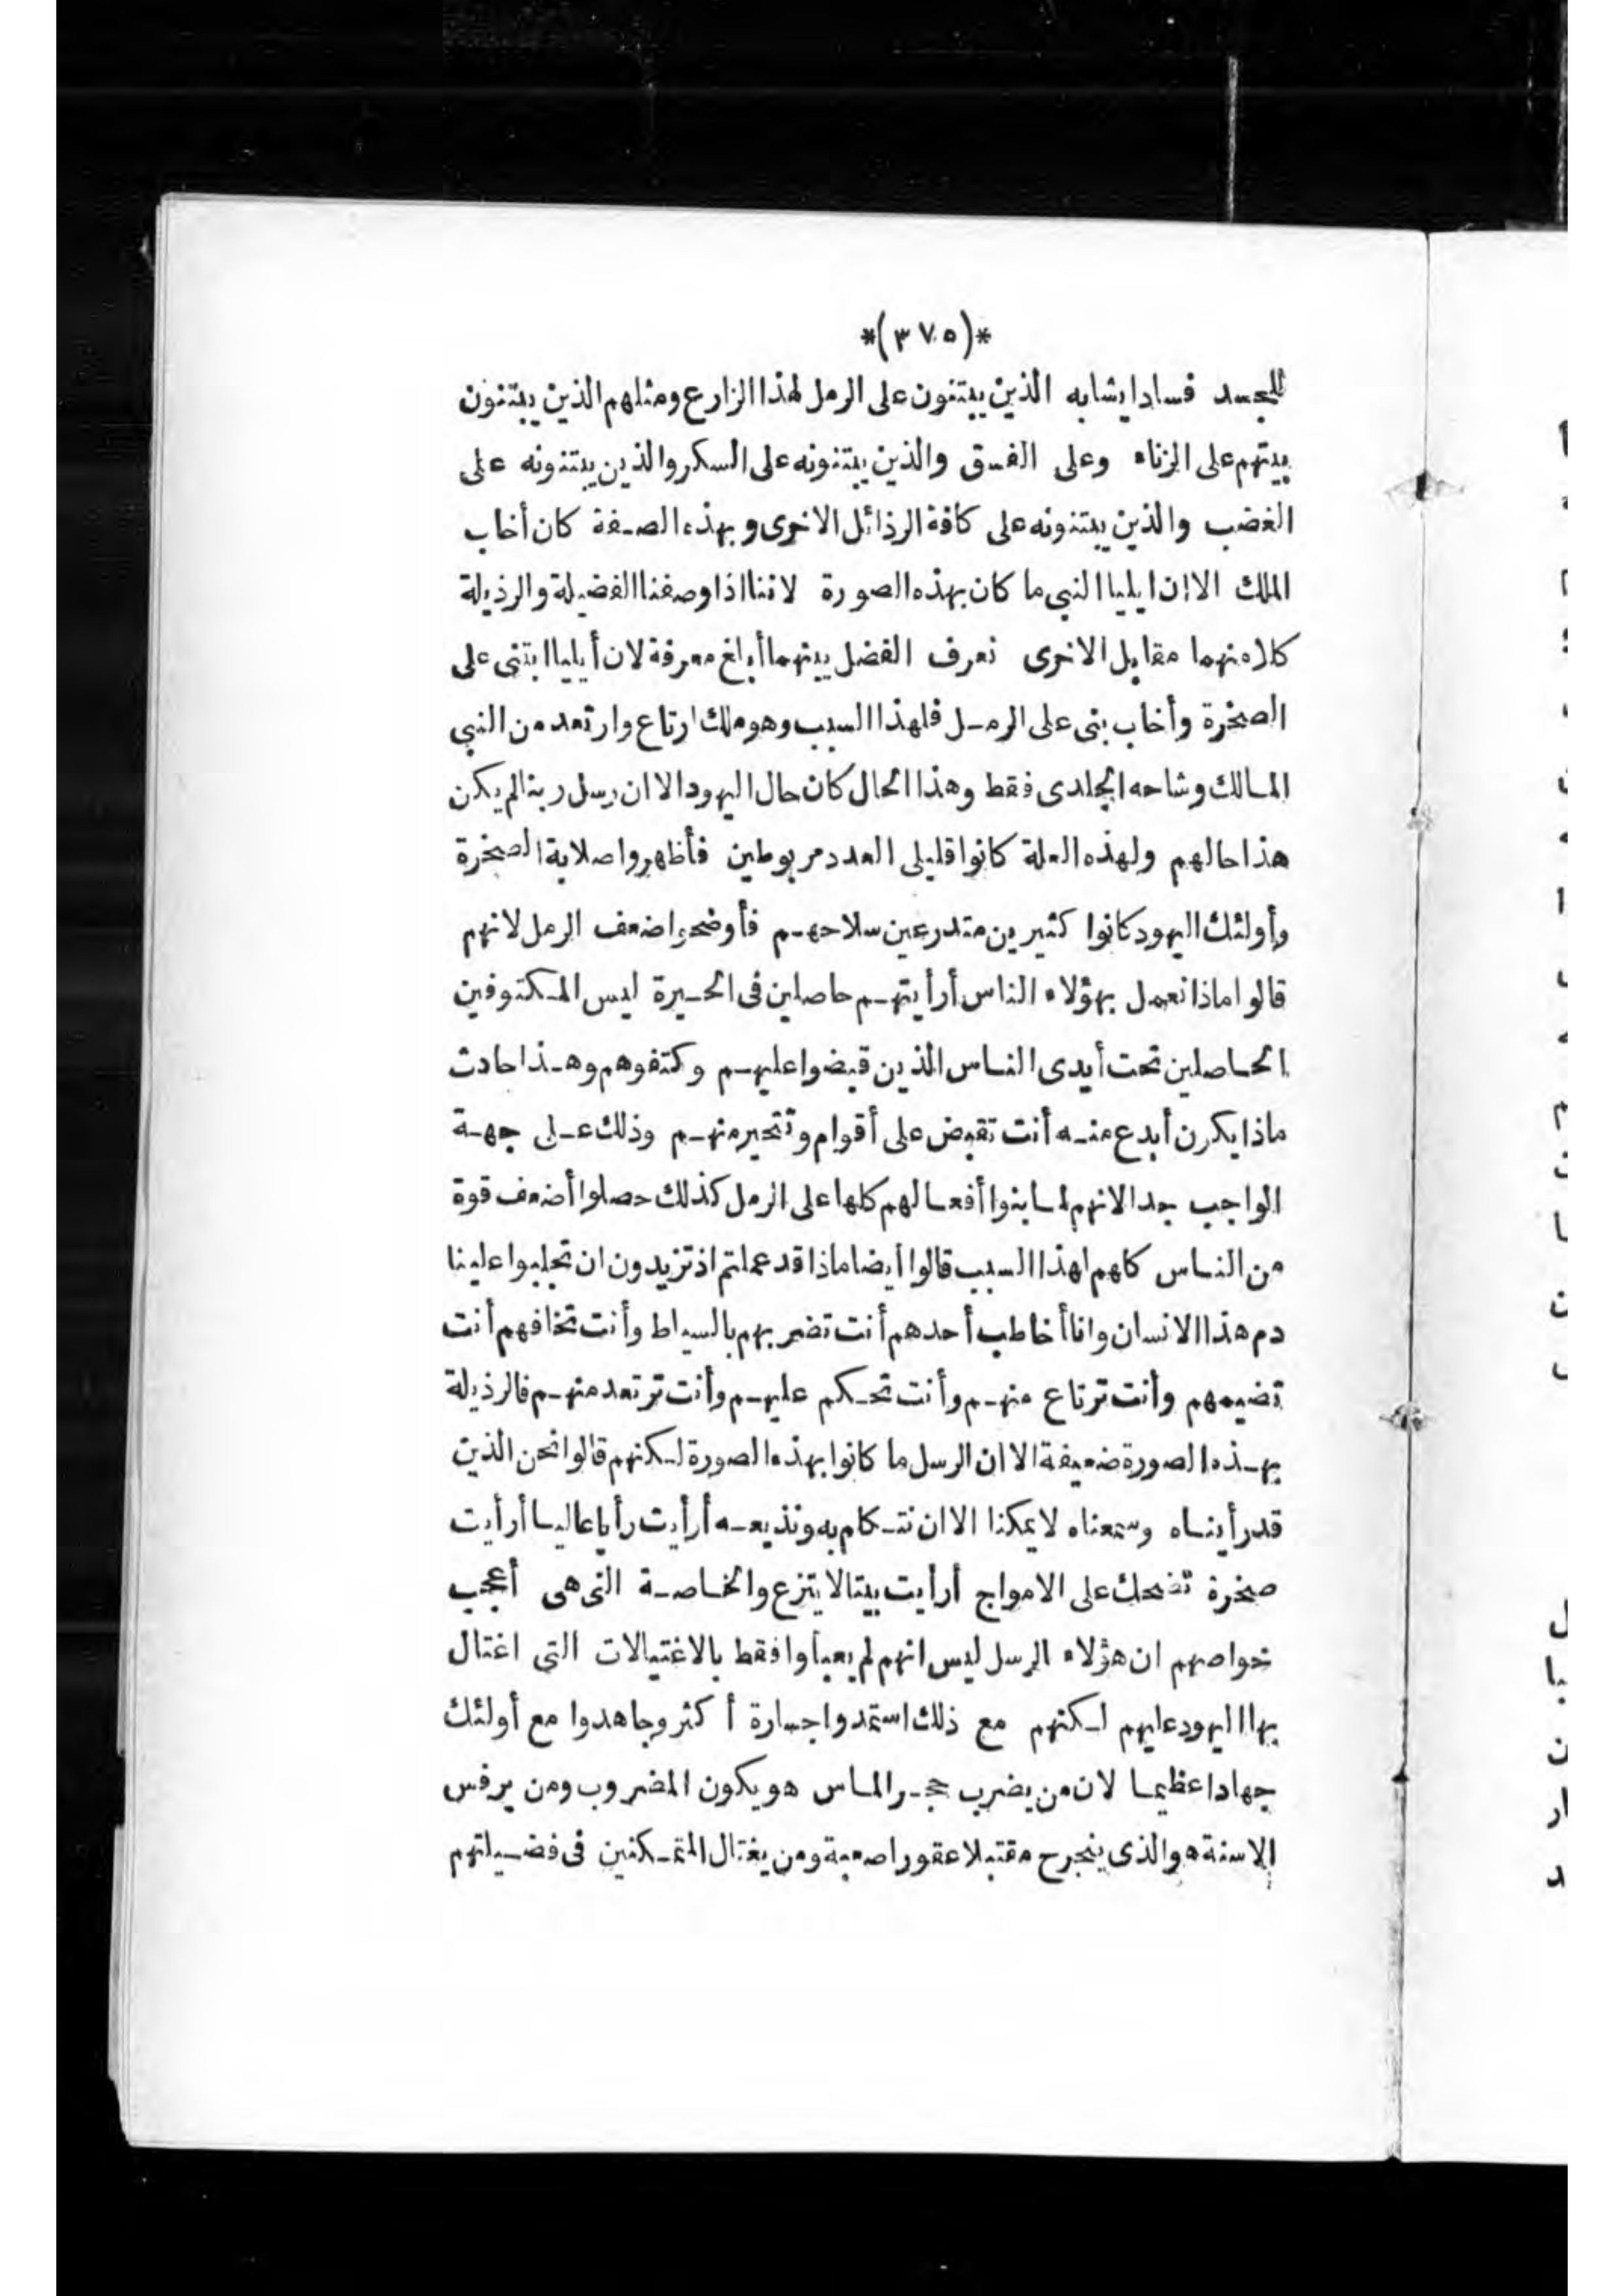 *(٣٧٥)*
للجسد فسادا يشابه الذين يبتنون على الرمل لهذا الزارع ومثلهم الذين يبتنون
بيتهم على الزناء وعلى الفسق والذين يبتنونه على السكر والذين يبتنونه على
الغضب والذين يبتنونه على كافة الرذائل الاخرى وبهذه الصفة كان أخاب
الملك الا ان ايليا النبي ما كان بهذه الصورة لاننا اذا وصفنا الفضيلة والرذيلة
كلا منهما مقابل الاخرى نعرف الفضل بينهما أبلغ معرفة لان أيليا ابتنى على
الصخرة وأخاب بنى على الرمل فلهذا السبب وهو ملك ارتاع وارتعد من النبي
المالك وشاحه الجلدى فقط وهذا الحال كان حال اليهود الا ان رسل ربنا لم يكن
هذا حالهم ولهذه العلة كانوا قليلى العدد مربوطين فأظهروا صلابة الصخرة
وأولئك اليهود كانوا كثيرين متدرعين سلاحهم فأوضحوا ضعف الرمل لانهم
قالوا ماذا نعمل بهؤلاء الناس أرأيتهم حاصلين فى الحيرة ليس المكتوفين
الحاصلين تحت أيدى الناس الذين قبضوا عليهم وكتفوهم وهذا حادث
ماذا يكرن أبدع منه أنت تقبض على أقوام وتتحير منهم وذلك على جهة
الواجب جدا لانهم لما بنوا أفعالهم كلها على الرمل كذلك حصلوا أضعف قوة
من الناس كلهم لهذا السبب قالوا أيضا ماذا قد عملتم اذ تزيدون ان تجلبوا علينا
دم هذا الانسان وانا أخاطب أحدهم أنت تضربهم بالسياط وأنت تخافهم أنت
تضيمهم وأنت ترتاع منهم وأنت تحكم عليهم وأنت ترتعد منهم فالرذيلة
بهذه الصورة ضعيفة الا ان الرسل ما كانوا بهذه الصورة لكنهم قالوا نحن الذين
قد رأيناه وسمعناه لا يمكنا الا ان نتكلم به ونذيعه أرأيت رأيا عاليا أرأيت
صخرة تضحك على الامواج أرأيت بيتا لا يتزع والخاصة التى هى أعجب
خواصهم ان هؤلاء الرسل ليس انهم لم يعبأوا فقط بالاغتيالات التى اغتال
بها اليهود عليهم لكنهم مع ذلك استمدوا جسارة أكثر وجاهدوا مع أولئك
جهادا عظيما لان من يضرب حجر الماس هو يكون المضروب ومن يرفس
الاسنة هو الذى ينجرح مقتبلا عقورا صعبة ومن يغتال المتمكنين فى فضيلتهم